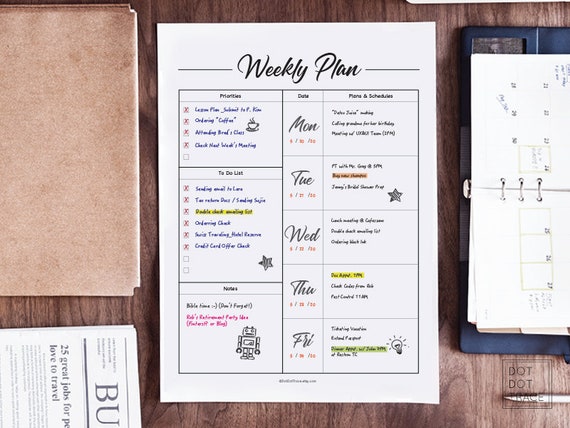 Weekly Plan
Priorities
Lesson Plan _Submit to P. Kim
Ordering "Coffee"
Attending Brad's Class
Check Next Week's Meeting
To Do List
Sending email to Lara
Tax return Docs / Sending Sujie
Double check emailing list
Ordering Check
Swiss Traveling_Hotel Reserve
Credit Card Offer Check
Notes
Bible time :-) (Don't Forget!)
Rob's Retirement Party Idea
(Pinterest or Blog)
Date
Plans & Schedules
Mon
"Detox Juice" making
Calling grandma for her birthday
Meeting w/ UX&UI Team (3PM)
Tue
PT with Mr. Greg @ 5PM
Buy new shampoo
Jenny's Bridal Shower Prep
Wed
Lunch meeting @ Cafezone
Double check emailing list
Ordering black Ink
Thu
Doc Appt. 7PM
Check Codes from Rob
Pest Control 11AM
Fri
Ticketing Vacation
Extend Passport
Dinner Appt. w/ John 7PM
25 great jobs for people
love to travel
BU
DOT
DOT
TRACE